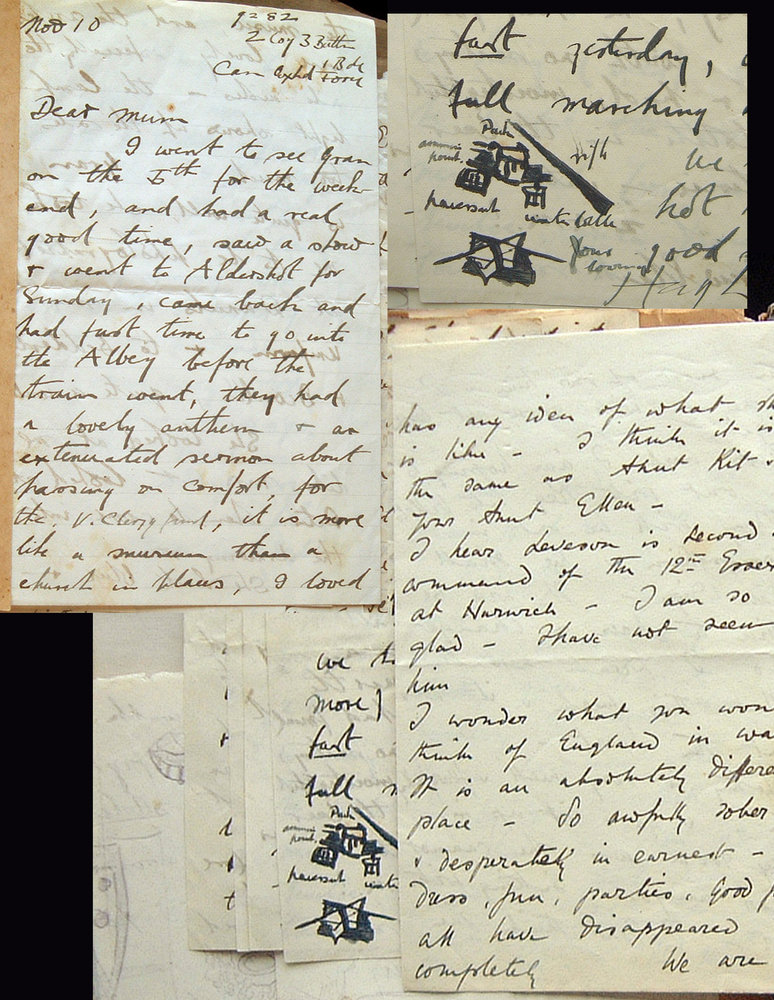 Nov 10
9282
2 Coy 3 Battn
1 Bde
Can Expd Force
Dear Mum
I went to see Gran
on the 5th for the week-
end, and had a real
good time, saw a show
& went to Aldershot for
Sunday, came back and
had just time to go into
the Abbey before the
train went, they had
a lovely anthem & an
extenuated sermon about
passing on comfort, for
the V. Clergy fund, it is more
like a museum than a
church in places, I loved
fast yesterday,
full marching
Pack
ammun
pouch.
rifle
we
haversack
water bottle
hot
Your good
loving
Hugh
has any idea of what
is like – I think it is
the same as Aunt Kit &
your Aunt Ellen –
I hear Leveson is second
command of the 12th Essex
at Harwich – I am so
glad – I have not seen
him
I wonder what you wou
think of England in wa
It is an absolutely differe
place – So awfully sober
& desperately in earnest –
Dress, fun, parties, good
all have disappeared
completely We are
we
more)
fast
full
Pack
ammun
pouch.
haversack
water